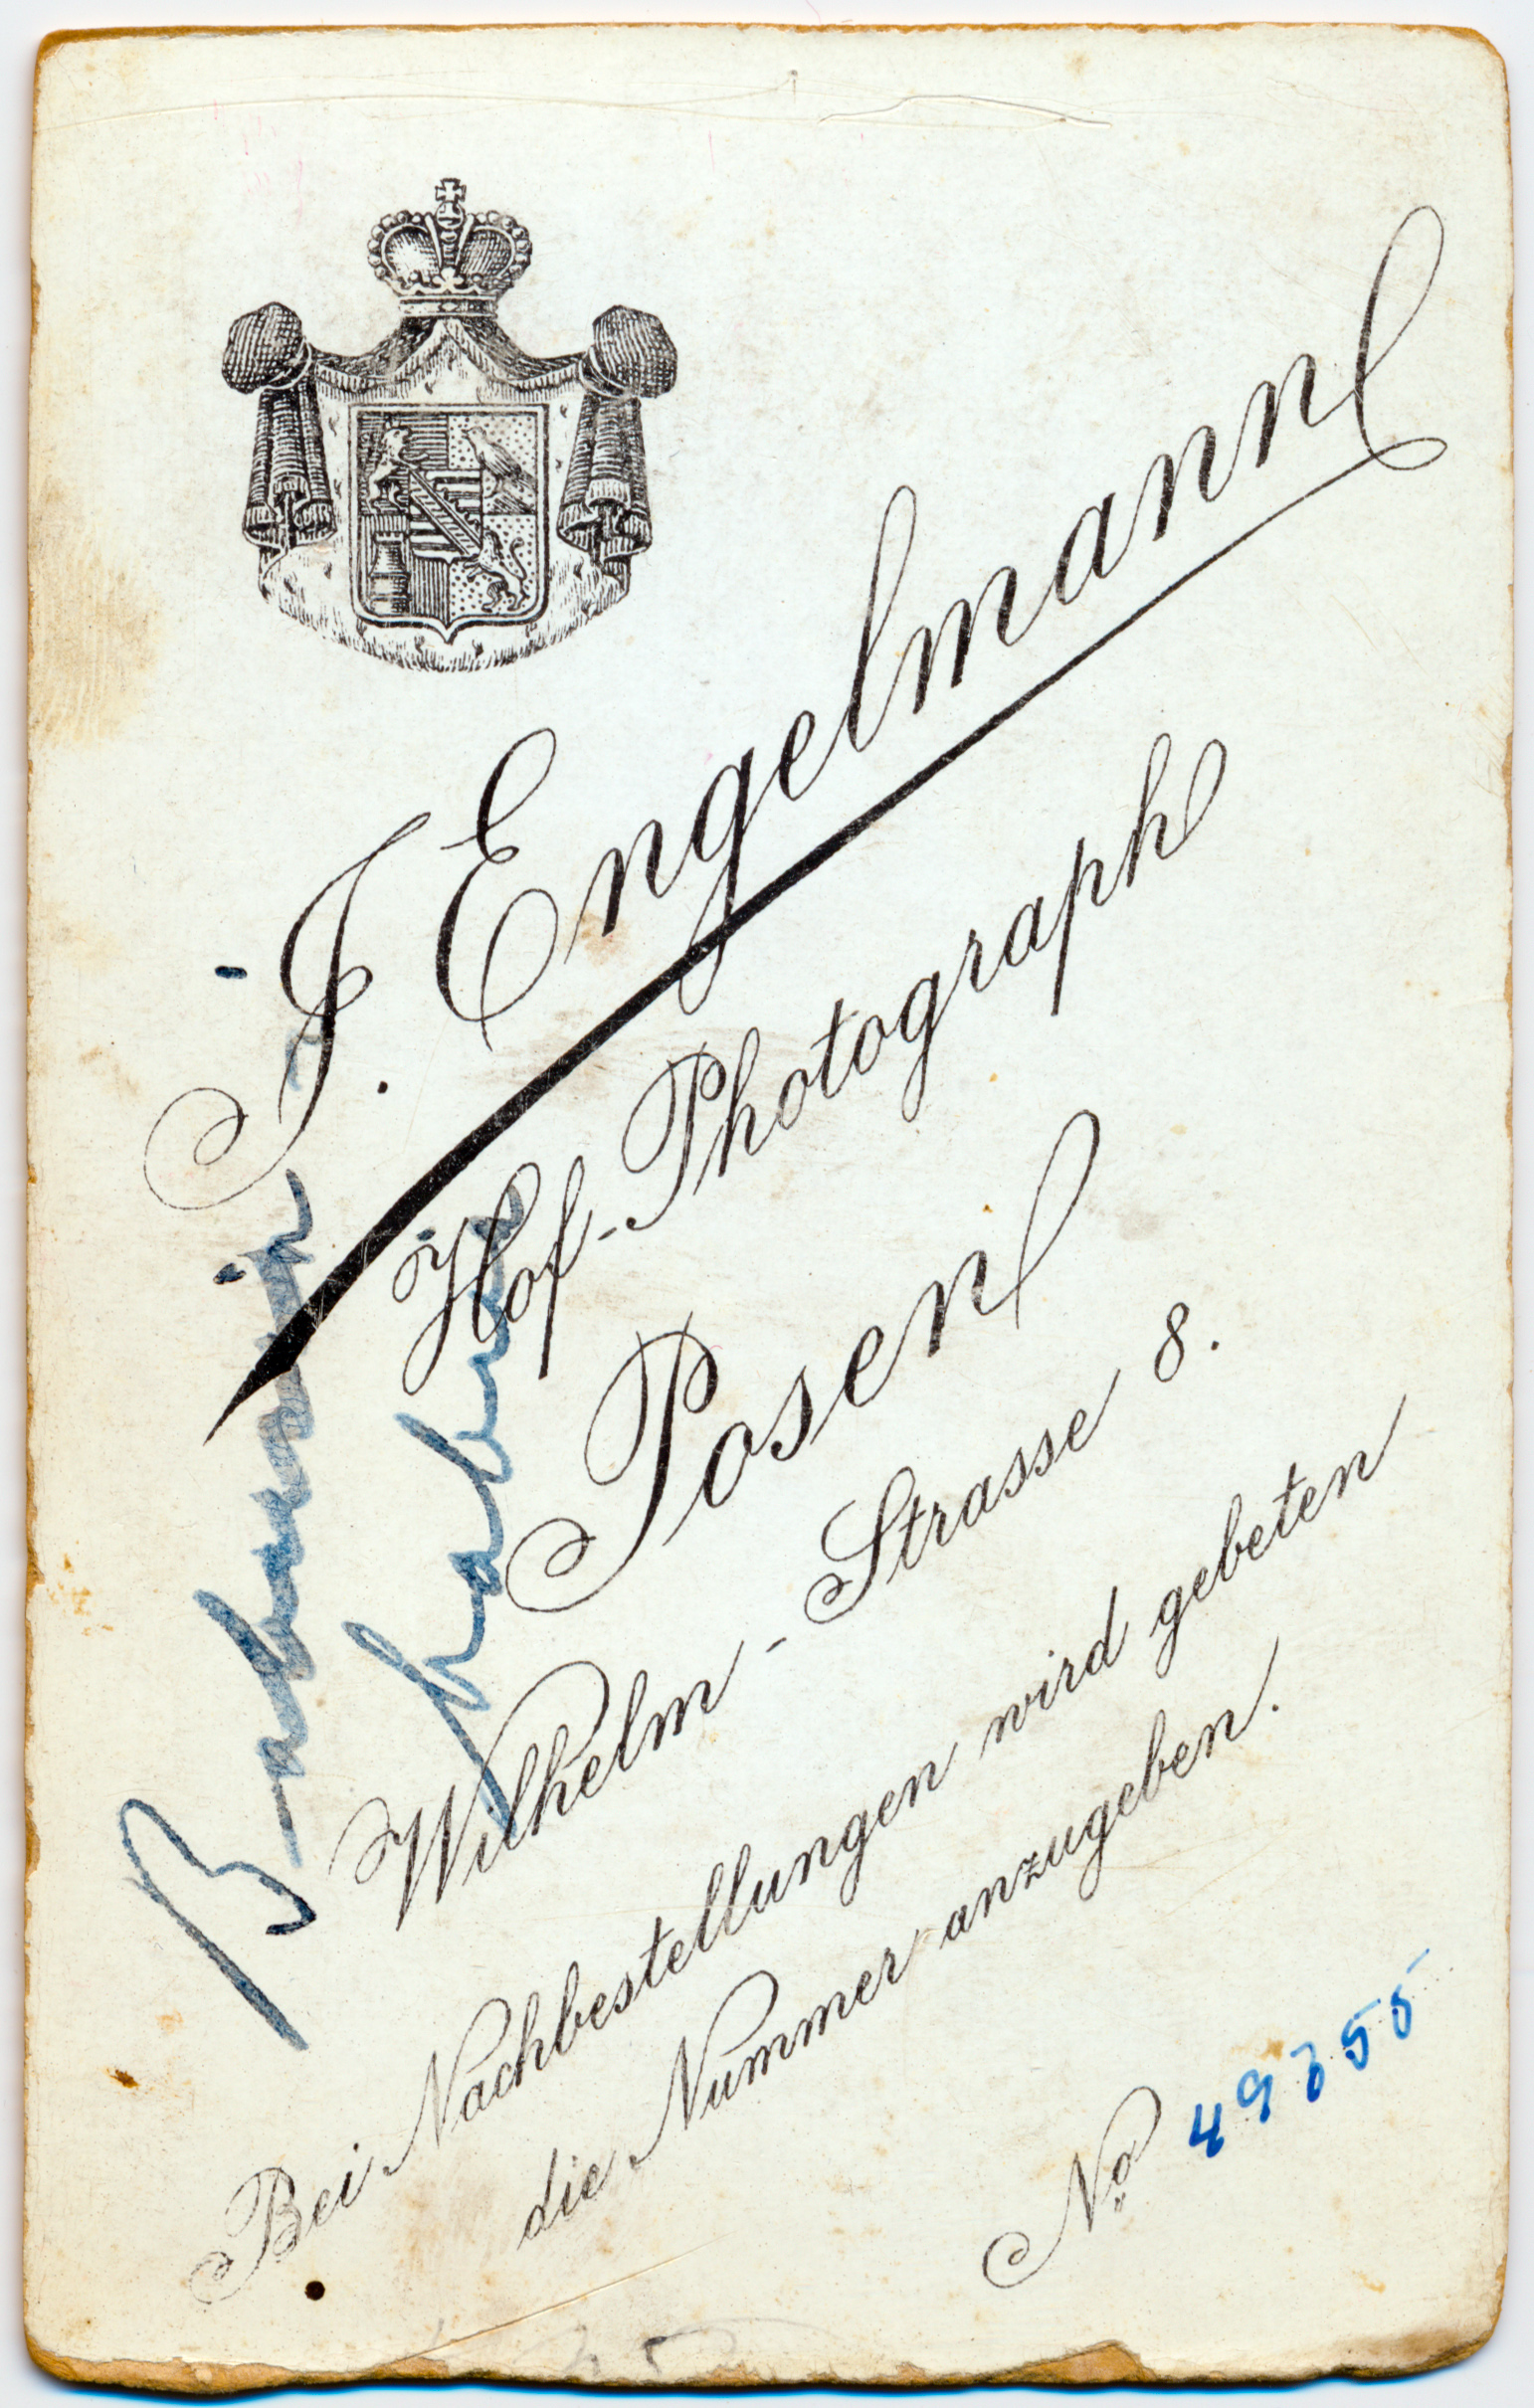 J. Engelmann
Hof-Photograph
Posen
Wilhelm-Strasse 8.
Bei Nachbestellungen wird gebeten
die Nummer anzugeben.
No